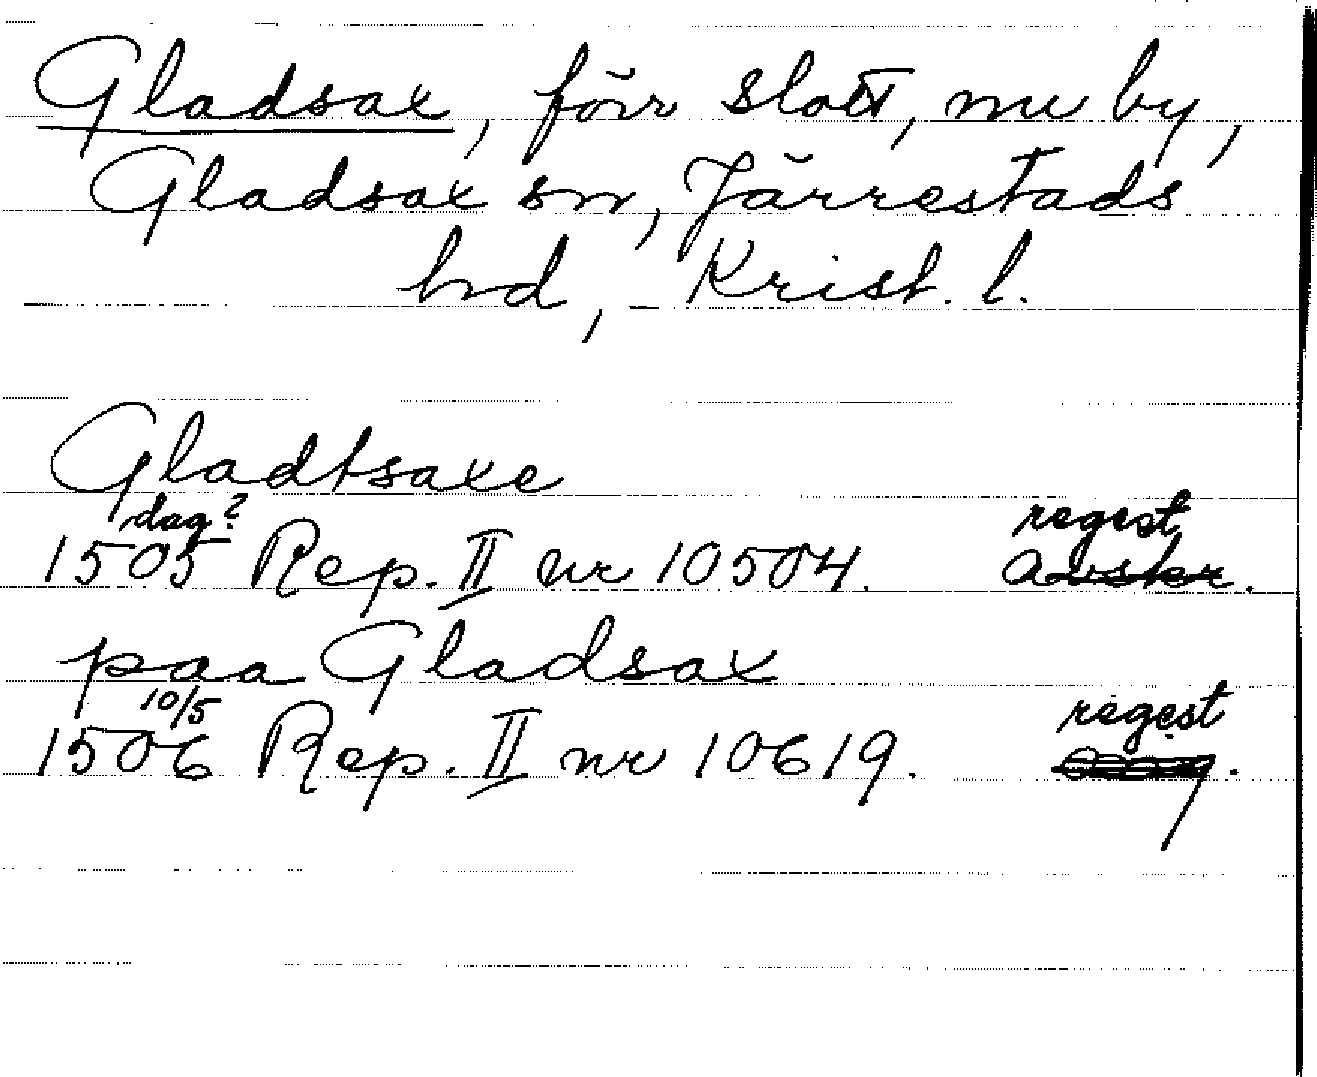 Gladsax, förr slott, nu by,
Gladsax sn, Järrestads
hd, Krist. l.
Gladtsaxe
dag? regest
1505 Rep. II nr 10504. avskr.
paa Gladsax
10/5 regest
1506 Rep. II nr 10619.